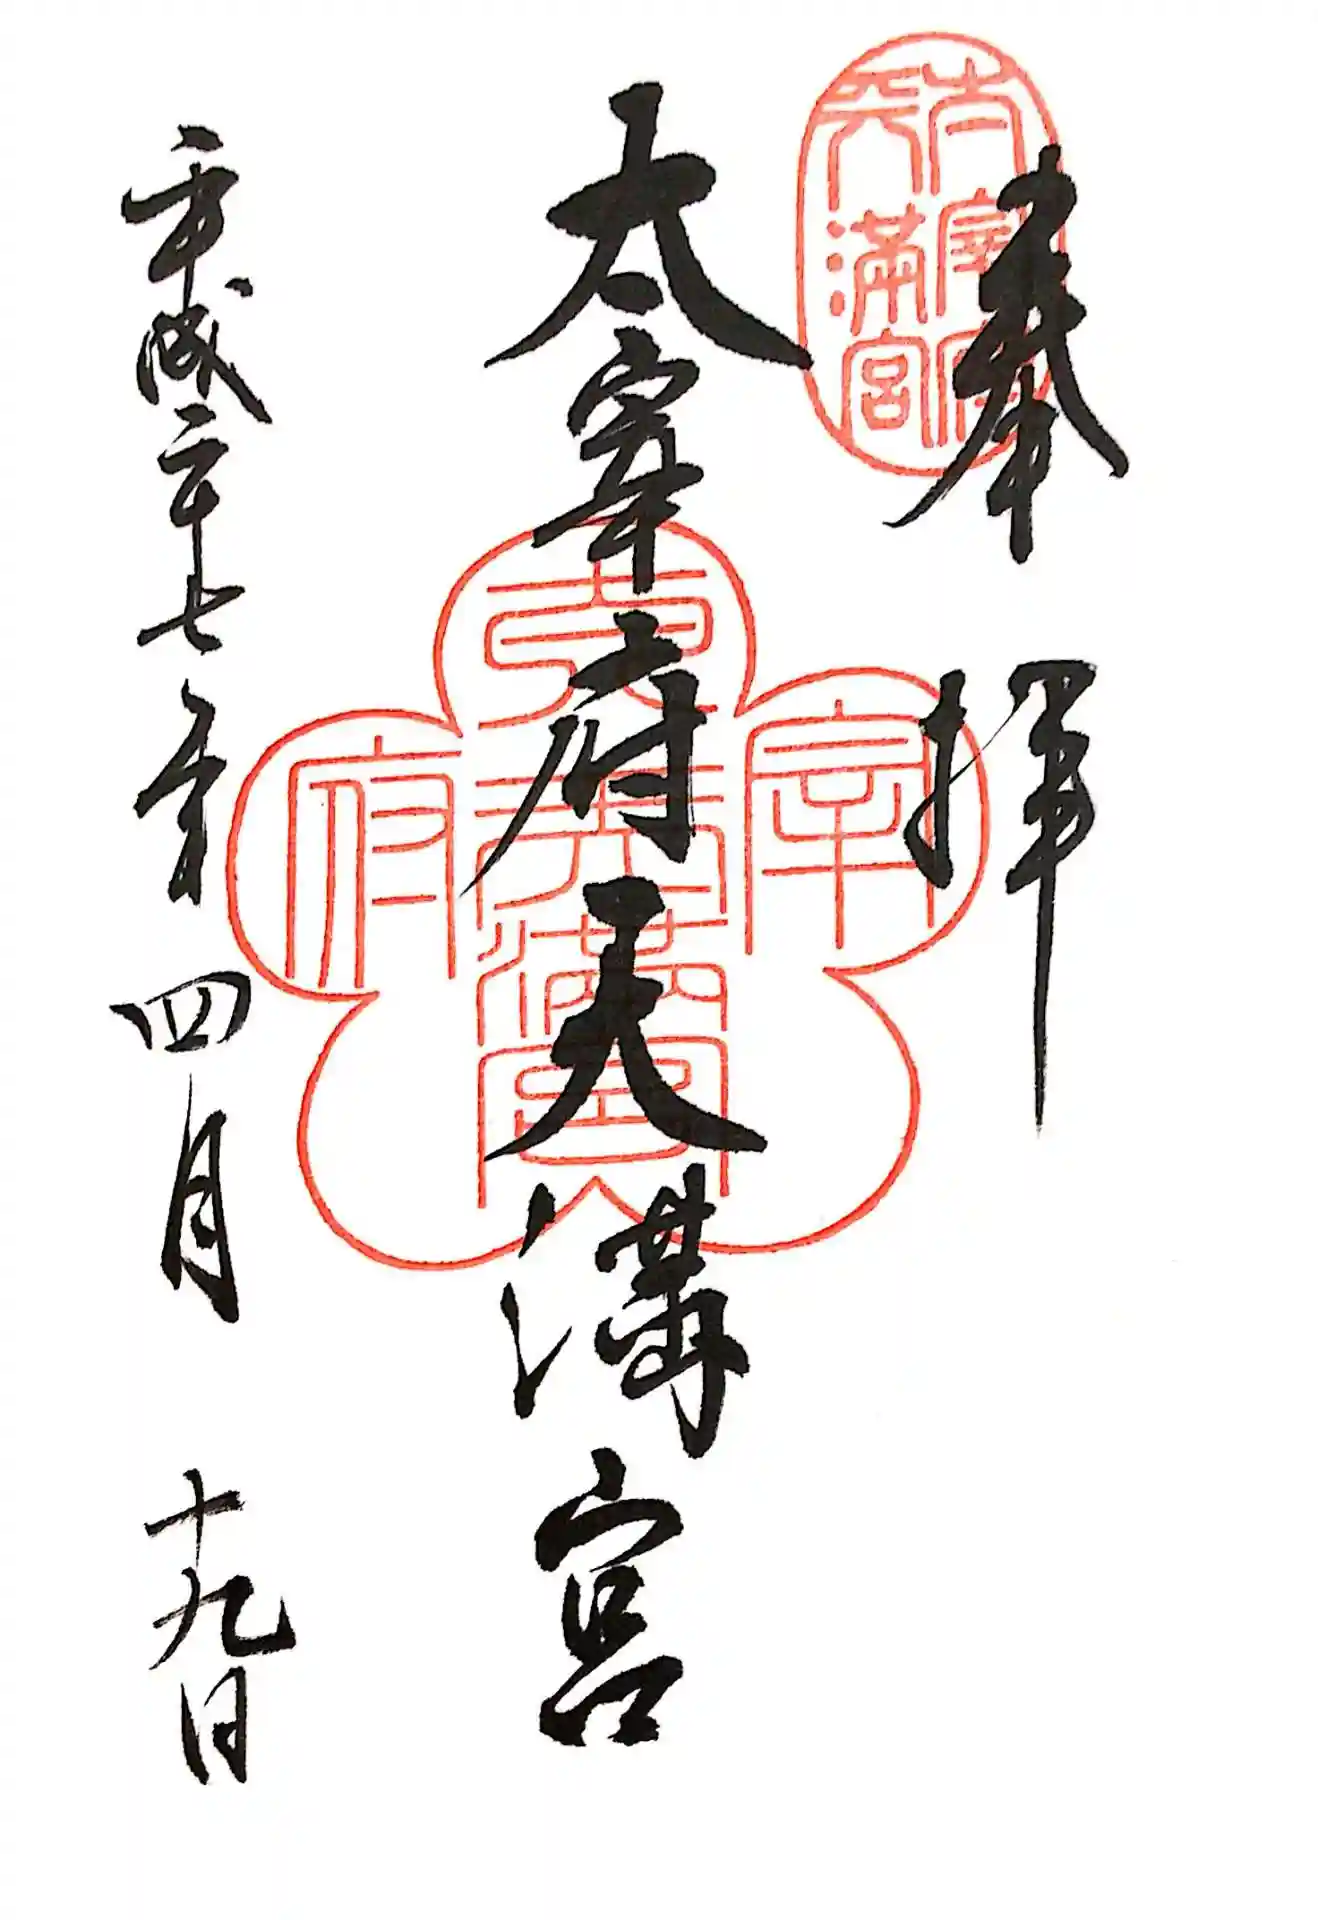 奉拝
太宰府天満宮
平成二十七年四月十九日
太宰府
天満宮
太宰府
天満宮